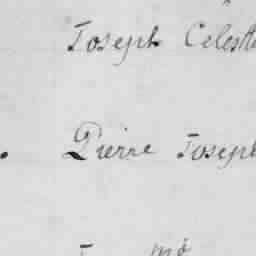 Joseph Celest
Pierre Joseph